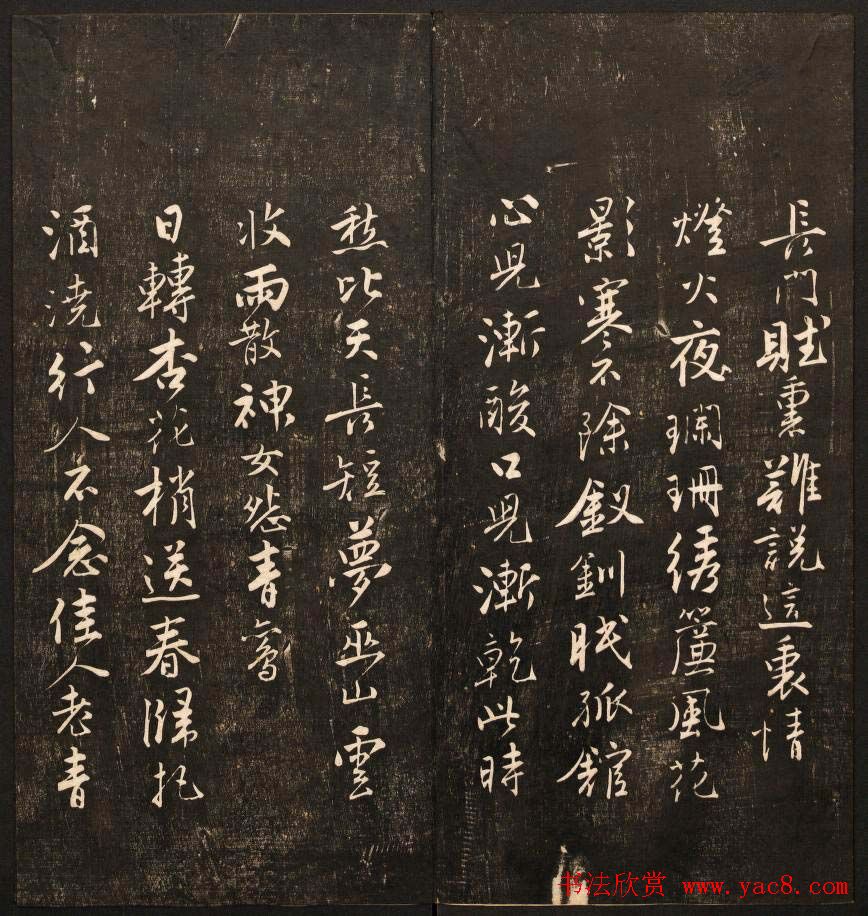 長門賦裏難說這裏情
燈火夜瓓珊绣簾風花
影寒不除釵釧眠孤館
心児漸酸口児漸乾此時
愁比天長短夢巫山雲
收雨散神女怨青鸞
日轉杏花梢送春歸把
酒澆行人不念佳人老青
书法欣赏 www.yac8.com